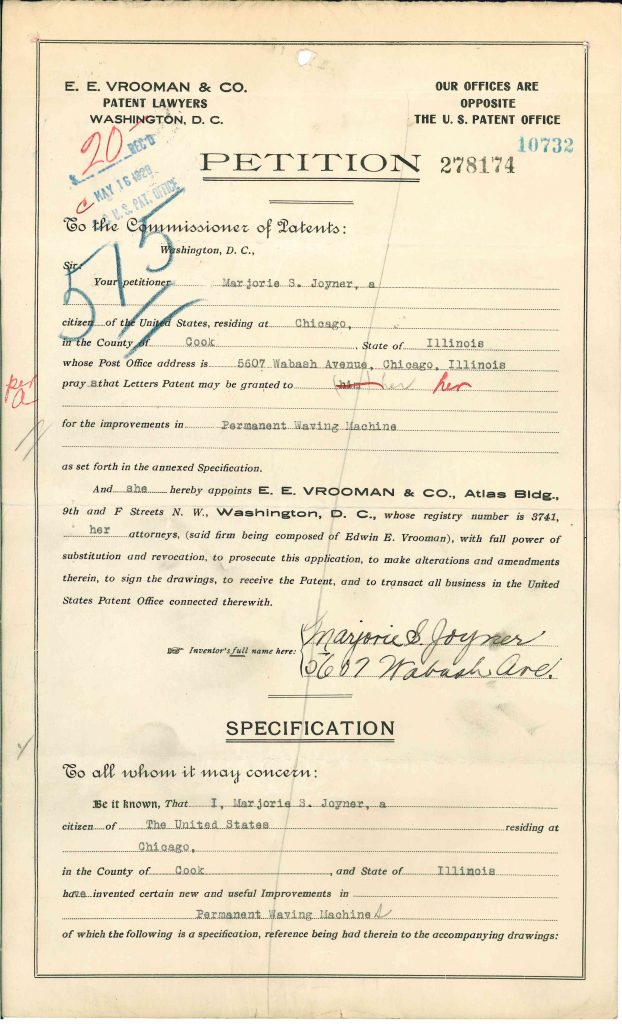 E. E. VROOMAN & CO.
PATENT LAWYERS
WASHINGTON, D. C.
OUR OFFICES ARE
OPPOSITE
THE U. S. PATENT OFFICE
10732
20
REC'D
MAY 16 1928
U. S. PAT. OFFICE
C
PETITION 278174
To the Commissioner of Patents:
Washington, D. C.,
Sir:
575
Your petitioner Marjorie S. Joyner, a
citizen of the United States, residing at Chicago,
in the County of Cook, State of Illinois
whose Post Office address is 5607 Wabash Avenue, Chicago, Illinois
per
a
pray s that Letters Patent may be granted to him her her
for the improvements in Permanent Waving Machine
as set forth in the annexed Specification.
And she hereby appoints E. E. VROOMAN & CO., Atlas Bldg.,
9th and F Streets N. W., Washington, D. C., whose registry number is 3741,
her attorneys, (said firm being composed of Edwin E. Vrooman), with full power of
substitution and revocation, to prosecute this application, to make alterations and amendments
therein, to sign the drawings, to receive the Patent, and to transact all business in the United
States Patent Office connected therewith.
Inventor's full name here:
Marjorie S. Joyner
5607 Wabash Ave.
SPECIFICATION
To all whom it may concern:
Be it known, That I, Marjorie S. Joyner, a
citizen of The United States residing at
Chicago,
in the County of Cook, and State of Illinois
have invented certain new and useful Improvements in
Permanent Waving Machines
of which the following is a specification, reference being had therein to the accompanying drawings: